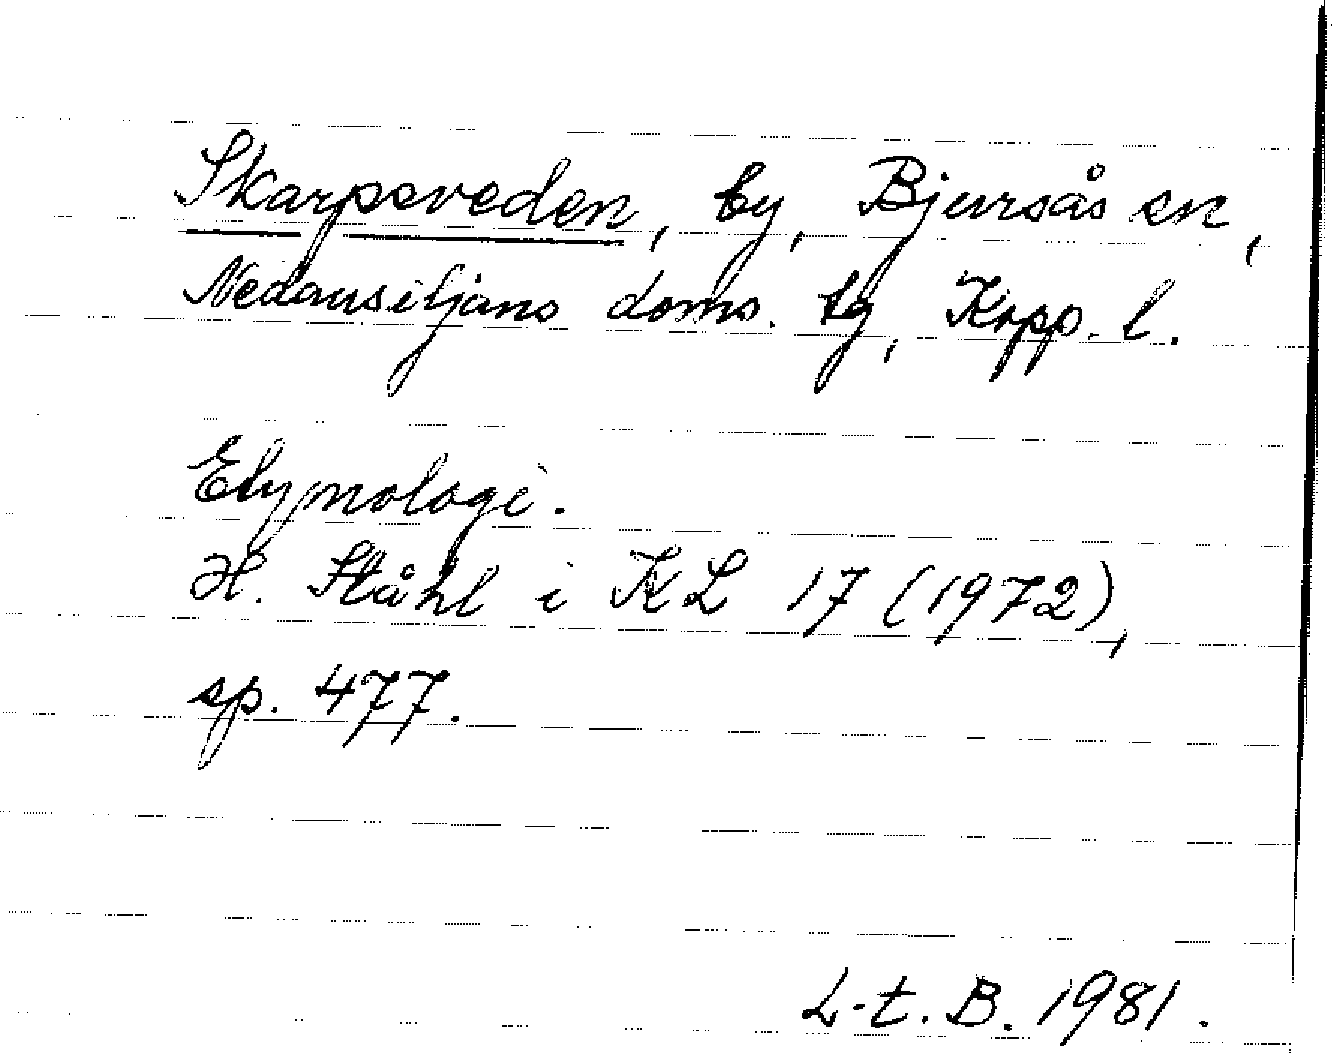 Skarpsveden, by, Bjursås sn,
Nedansiljans doms. tg, Kopp. l.
Etymologi.
H. Ståhl i KL 17 (1972),
sp. 477.
L-t. B. 1981.